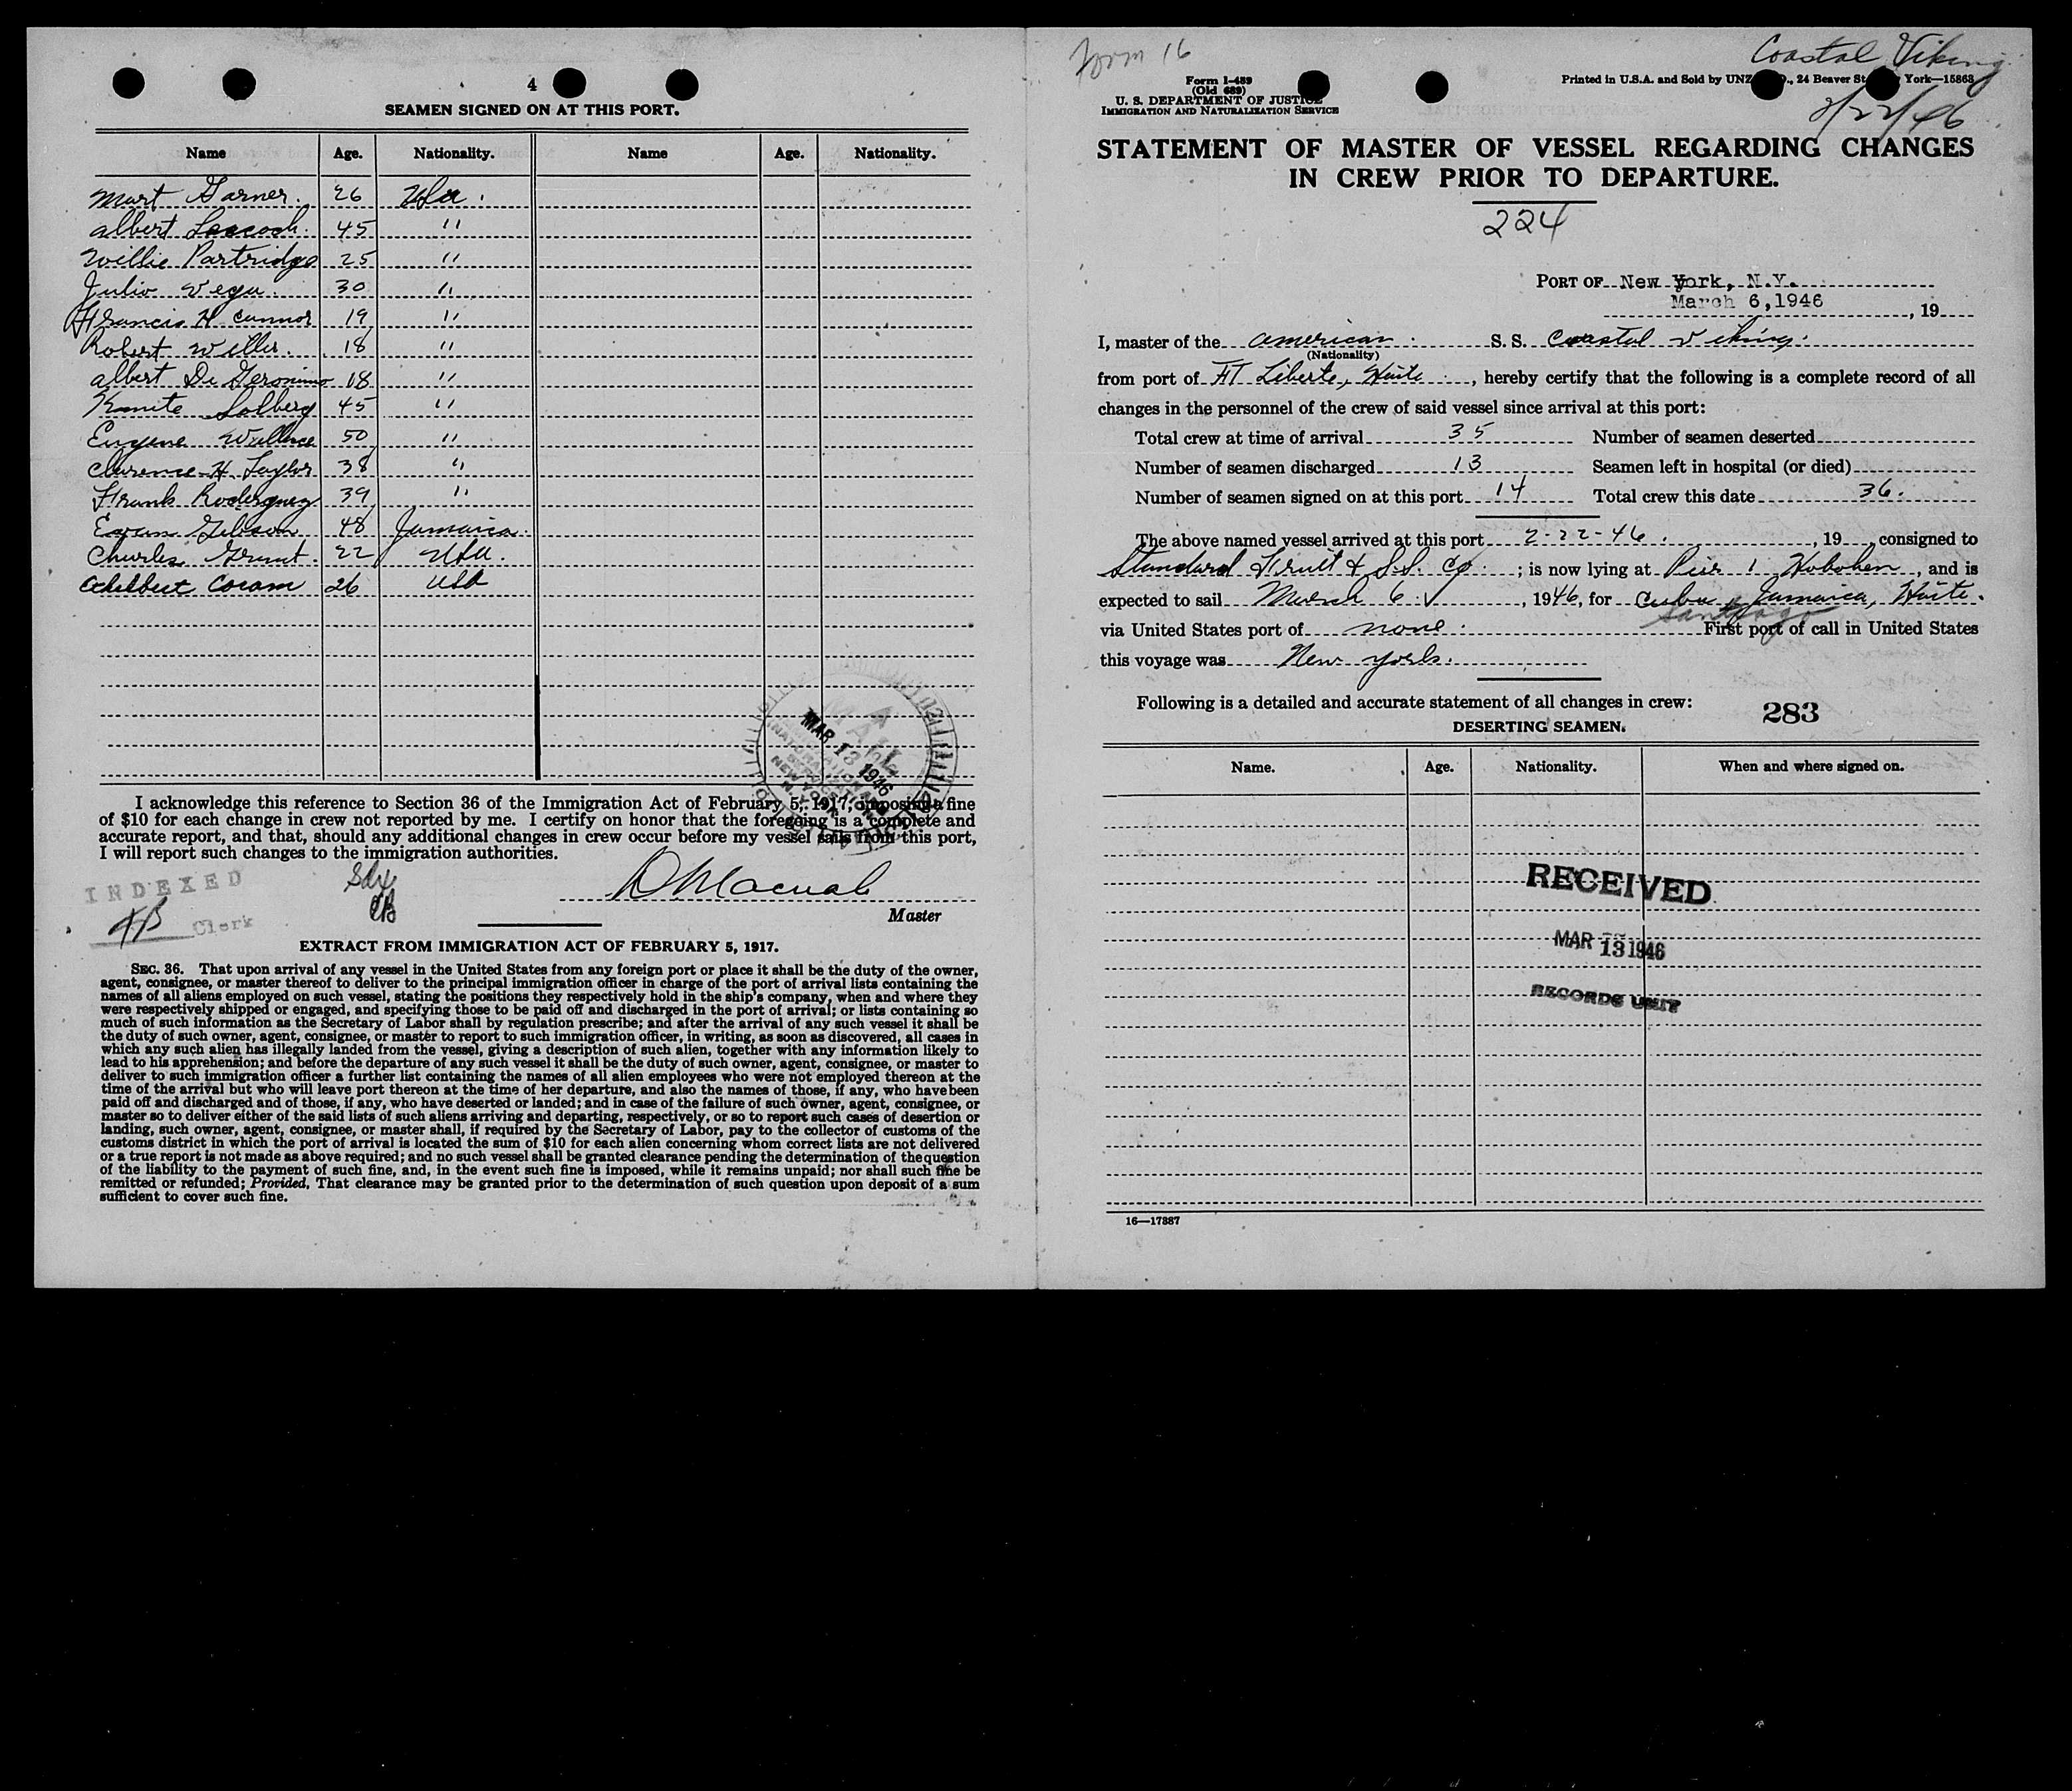 4
SEAMEN SIGNED ON AT THIS PORT.
Name Age. Nationality. Name Age. Nationality.
Mart Garner. 26 USA.
Albert 45 "
Willie Partridge 25 "
Julio Vega. 30 "
Francis H Connor 19 "
Robert Willis. 18 "
Albert De Geronimo 18 "
Solberg 45 "
Eugene Wallace 50 "
Clarence H. Taylor 38 "
Frank Roderguez 39 "
Gibson 48 Jamaica.
Charles Grant. 22 USA.
Ethelbert Coram 26 USA
MAR 13 1946
NEW YORK
I acknowledge this reference to Section 36 of the Immigration Act of February 5, 1917, imposing a fine
of $10 for each change in crew not reported by me. I certify on honor that the foregoing is a complete and
accurate report, and that, should any additional changes in crew occur before my vessel sails from this port,
I will report such changes to the immigration authorities.
INDEXED
Clerk
Master
EXTRACT FROM IMMIGRATION ACT OF FEBRUARY 5, 1917.
SEC. 36. That upon arrival of any vessel in the United States from any foreign port or place it shall be the duty of the owner,
agent, consignee, or master thereof to deliver to the principal immigration officer in charge of the port of arrival lists containing the
names of all aliens employed on such vessel, stating the positions they respectively hold in the ship's company, when and where they
were respectively shipped or engaged, and specifying those to be paid off and discharged in the port of arrival; or lists containing so
much of such information as the Secretary of Labor shall by regulation prescribe; and after the arrival of any such vessel it shall be
the duty of such owner, agent, consignee, or master to report to such immigration officer, in writing, as soon as discovered, all cases in
which any such alien has illegally landed from the vessel, giving a description of such alien, together with any information likely to
lead to his apprehension; and before the departure of any such vessel it shall be the duty of such owner, agent, consignee, or master to
deliver to such immigration officer a further list containing the names of all alien employees who were not employed thereon at the
time of the arrival but who will leave port thereon at the time of her departure, and also the names of those, if any, who have been
paid off and discharged and of those, if any, who have deserted or landed; and in case of the failure of such owner, agent, consignee, or
master so to deliver either of the said lists of such aliens arriving and departing, respectively, or so to report such cases of desertion or
landing, such owner, agent, consignee, or master shall, if required by the Secretary of Labor, pay to the collector of customs of the
customs district in which the port of arrival is located the sum of $10 for each alien concerning whom correct lists are not delivered
or a true report is not made as above required; and no such vessel shall be granted clearance pending the determination of the question
of the liability to the payment of such fine, and, in the event such fine is imposed, while it remains unpaid; nor shall such fine be
remitted or refunded; Provided, That clearance may be granted prior to the determination of such question upon deposit of a sum
sufficient to cover such fine.
Form 16
Coastal Viking
2/22/46
Form I-489
(Old 689)
U. S. DEPARTMENT OF JUSTICE
IMMIGRATION AND NATURALIZATION SERVICE
Printed in U.S.A. and Sold by UNZ , 24 Beaver St York—15868
STATEMENT OF MASTER OF VESSEL REGARDING CHANGES
IN CREW PRIOR TO DEPARTURE.
224
PORT OF New York, N.Y.
March 6,1946 , 19
I, master of the American S. S. Coastal Viking.
(Nationality)
from port of FT Liberte, Haite , hereby certify that the following is a complete record of all
changes in the personnel of the crew of said vessel since arrival at this port:
Total crew at time of arrival 35 Number of seamen deserted
Number of seamen discharged 13 Seamen left in hospital (or died)
Number of seamen signed on at this port 14 Total crew this date 36.
The above named vessel arrived at this port 2-22-46. , 19 , consigned to
Standard Fruit & S.S. Co. ; is now lying at Pier 1 Hoboken , and is
expected to sail March 6 ✓ , 1946, for Cuba, Jamaica, Haite.
Santiago
via United States port of none. First port of call in United States
this voyage was New York.
Following is a detailed and accurate statement of all changes in crew:
283
DESERTING SEAMEN.
Name. Age. Nationality. When and where signed on.
RECEIVED
MAR 13 1946
RECORDS UNIT
16—17887